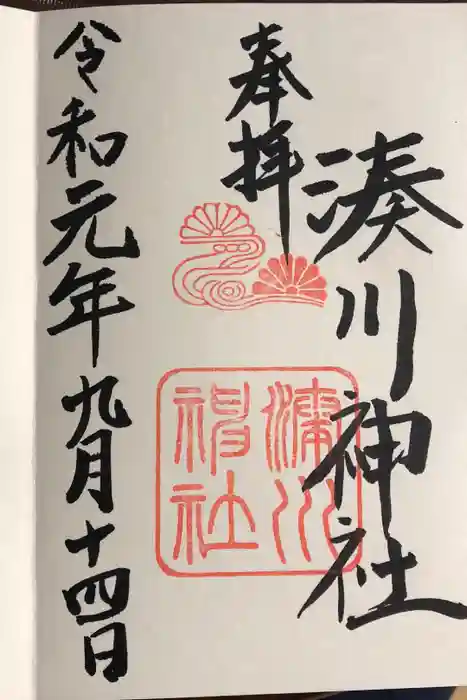 奉拝
湊川神社
湊川神社
令和元年九月十四日